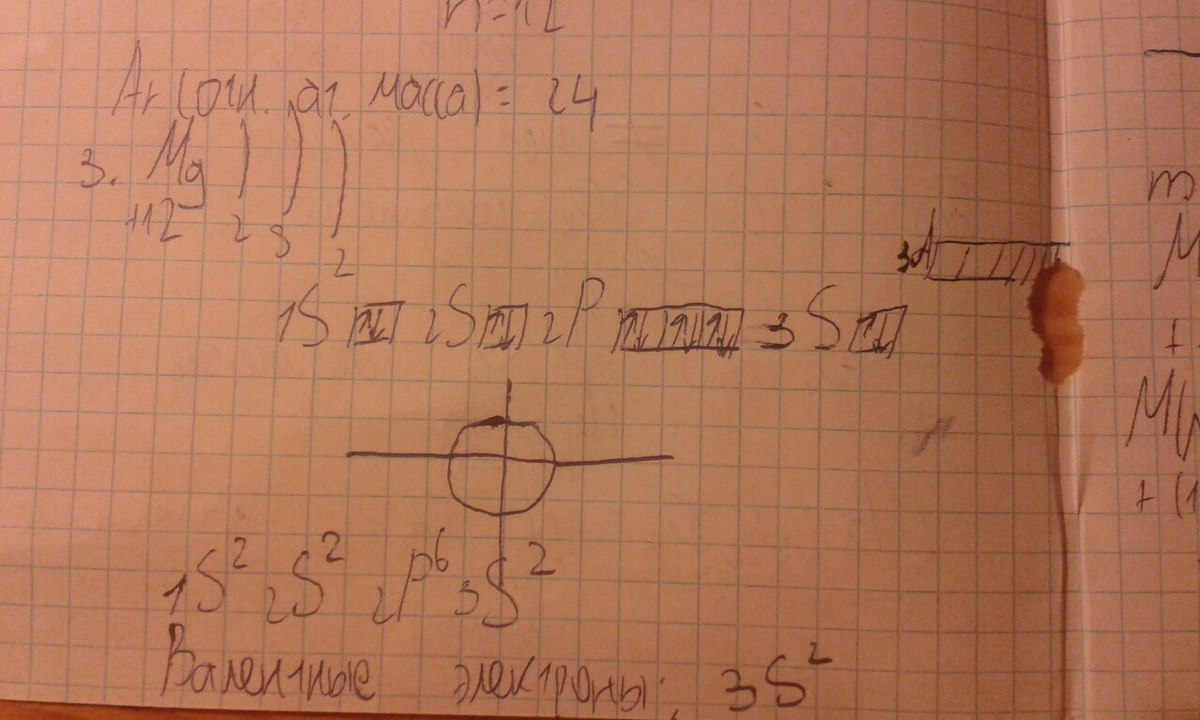 n=12
Ar (отн. ат. масса) = 24
3. Mg ) ) )
+12 2 8 2
3d
1S 2S 2P 3S
1S² 2S² 2P⁶ 3S²
Валентные электроны: 3S²
m
M
+
M(
+ (1